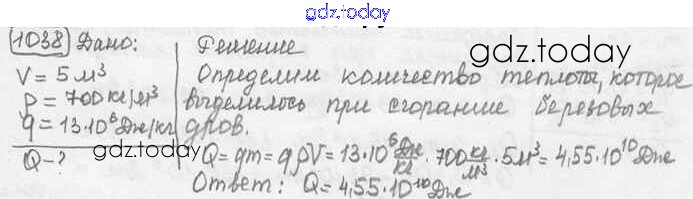 gdz.today
1038 Дано:
V = 5 м³
ρ = 700 кг/м³
q = 13·10⁶ Дж/кг
Q - ?
Решение
gdz.today
Определим количество теплоты, которое
выделилось при сгорание березовых
дров.
gdz.today
Q = qm = qρV = 13·10⁶ Дж/кг · 700 кг/м³ · 5 м³ = 4,55·10¹⁰ Дж
Ответ: Q = 4,55·10¹⁰ Дж